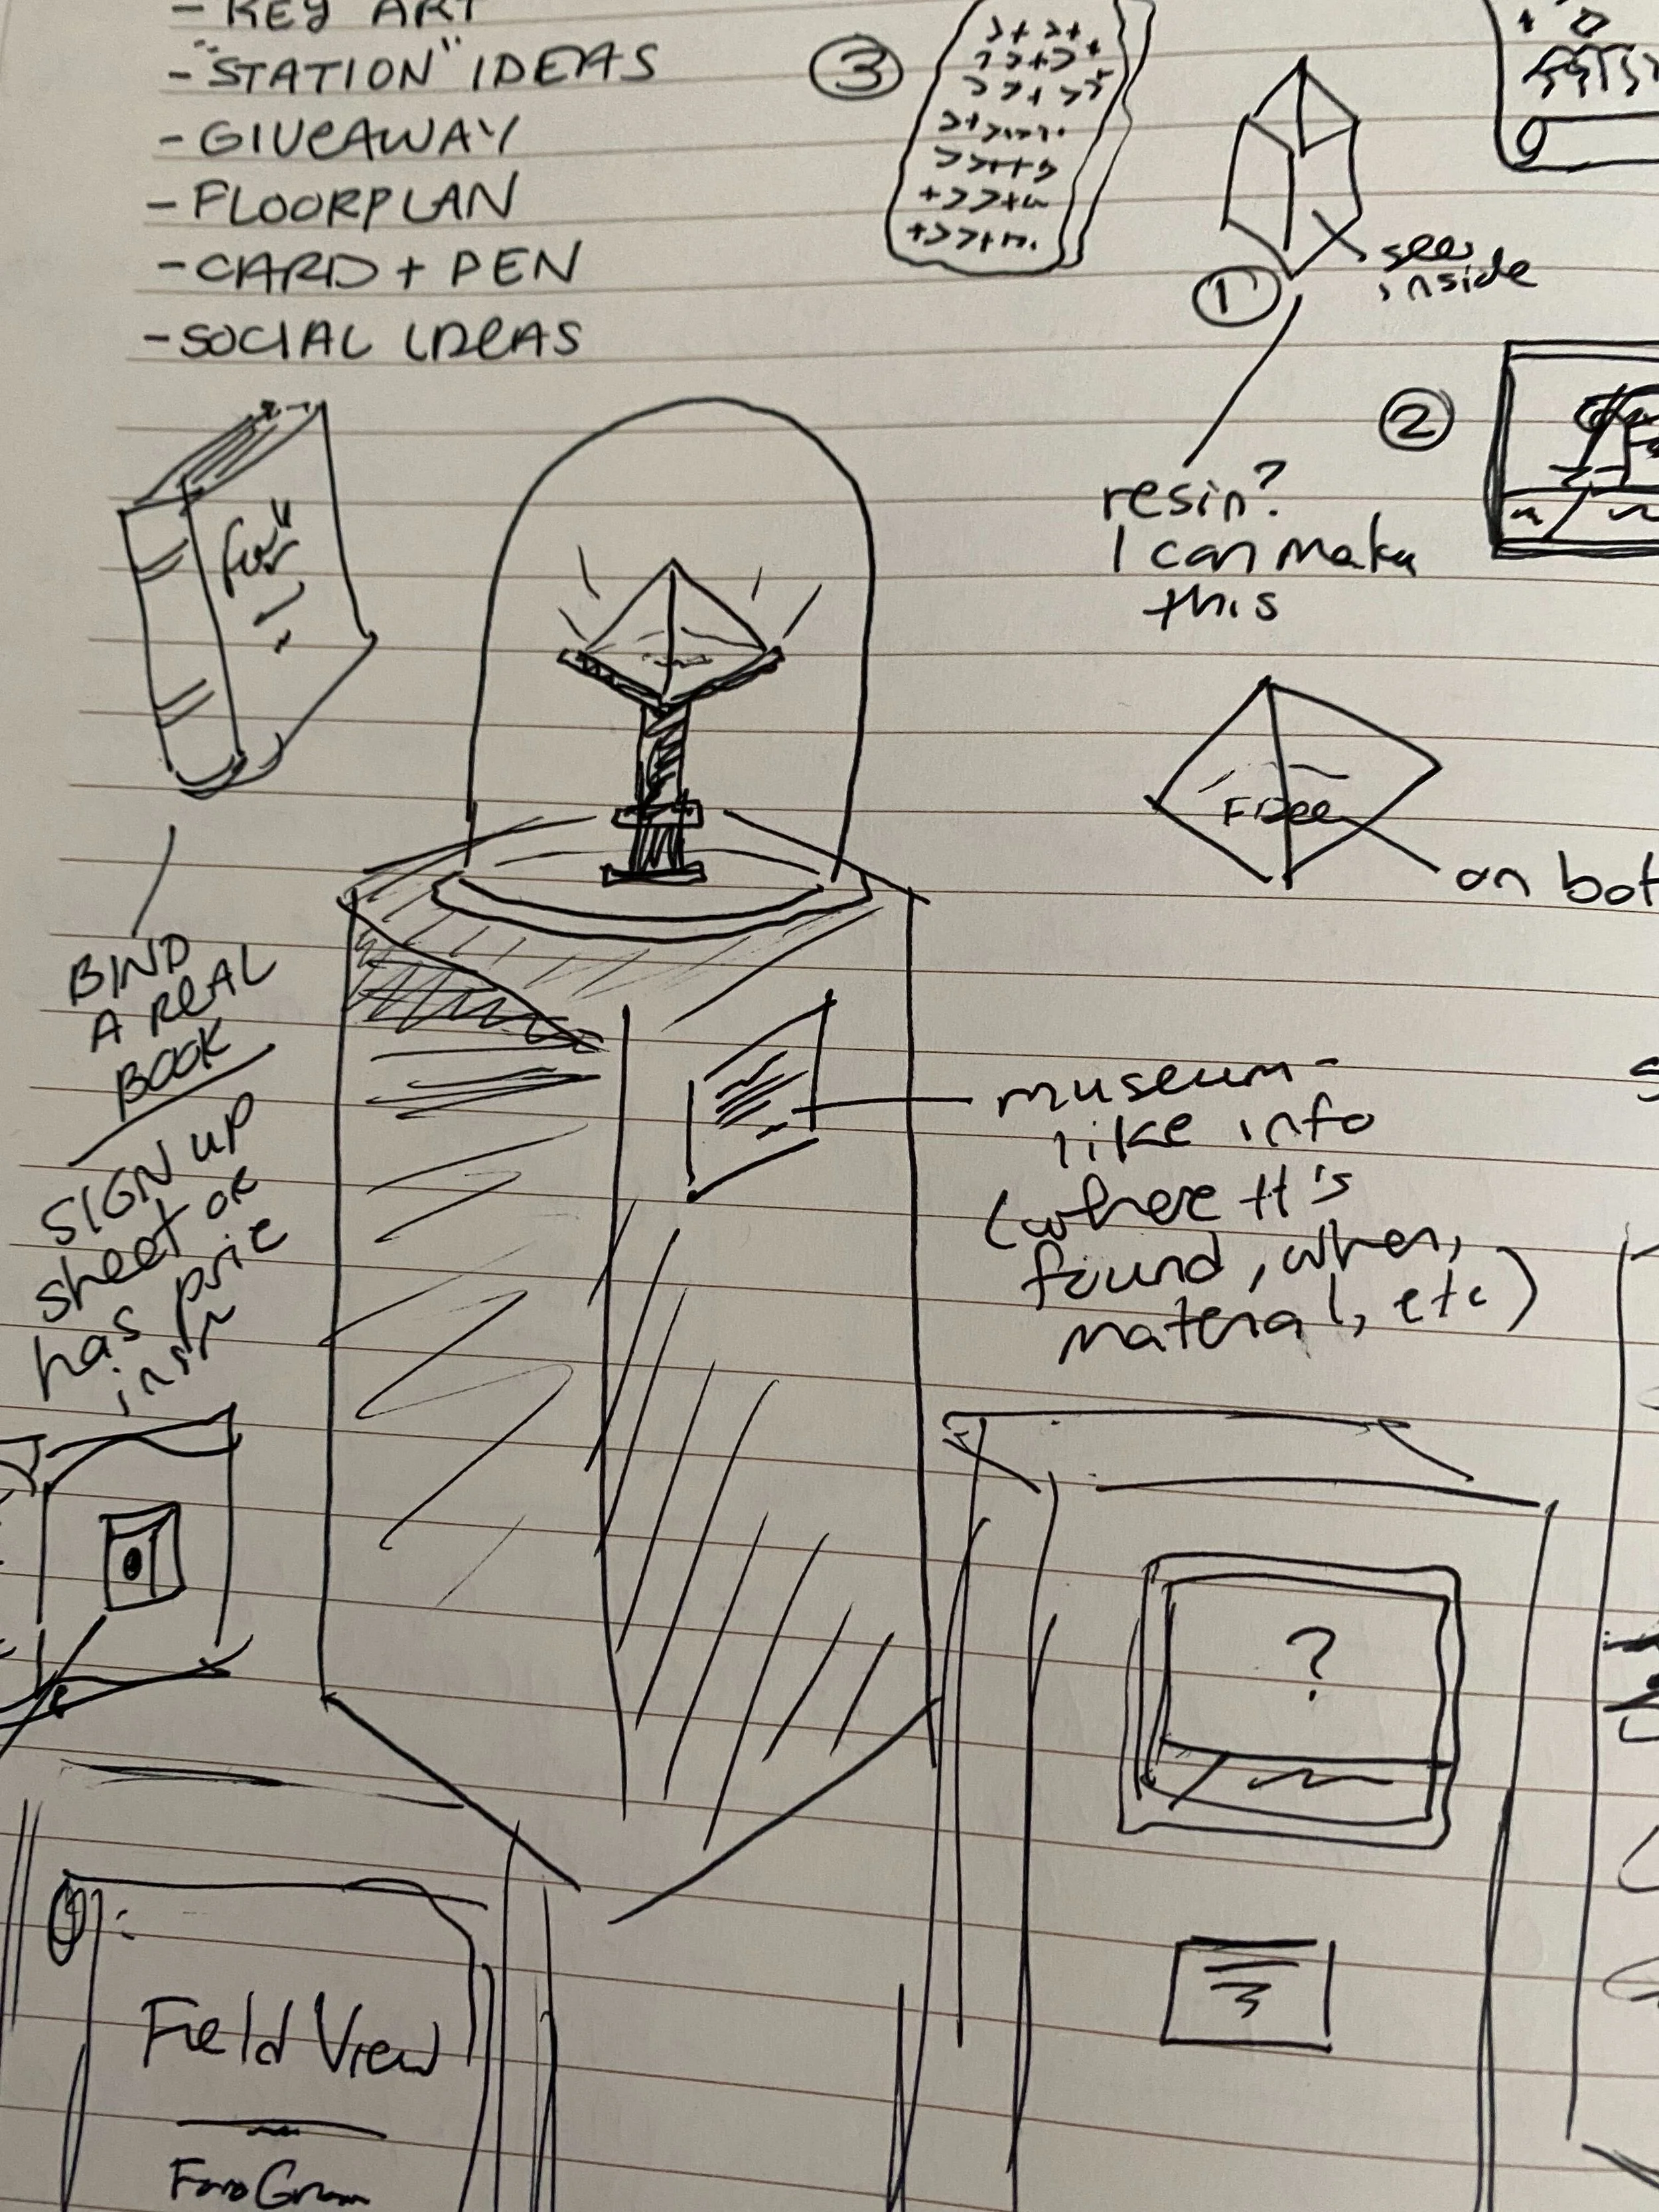 - KEY ART
- "STATION" IDEAS
- GIVEAWAY
- FLOORPLAN
- CARD + PEN
- SOCIAL IDEAS
3
see
inside
1
2
resin?
I can make
this
on bot
BIND
A REAL
BOOK
SIGN UP
sheet or
has
museum-
like info
(where it's
found, when,
material, etc)
?
Field View